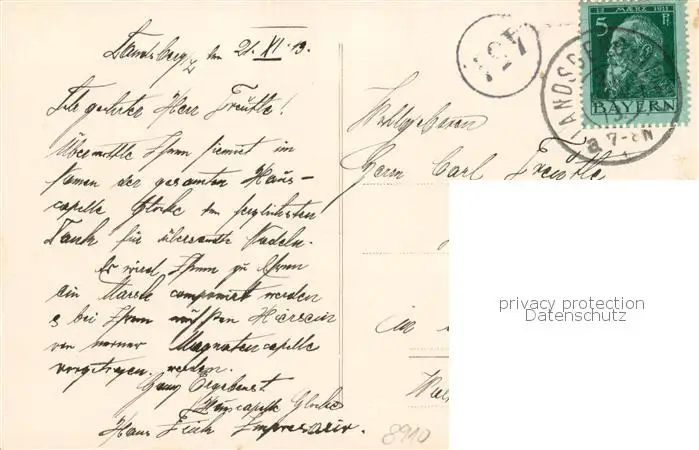 Landsberg, den 21. XI. 13.
Sehr geehrter Herr Treutle!
Übermittle Ihnen hiemit im
Namen der gesamten Haus-
capelle Glocke den herzlichsten
Dank für übersandte Nadeln.
Es wird Ihnen zu Ehren
ein Marsch componiert werden
& bei Ihrem Hiersein
von Magnatencapelle
vorgetragen werden.
Ganz Ergebenst
Hauscapelle Glocke
Hans Impresario.
Wohlgeboren
Herrn Carl Treutle
in
8910
127
12 MÆRZ 1911
5 Pf
BAYERN
LANDSB
7-8N
privacy protection
Datenschutz